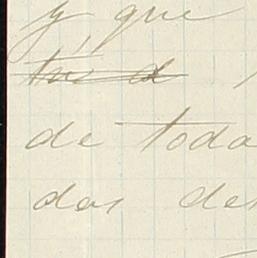 y, que
de toda
das de